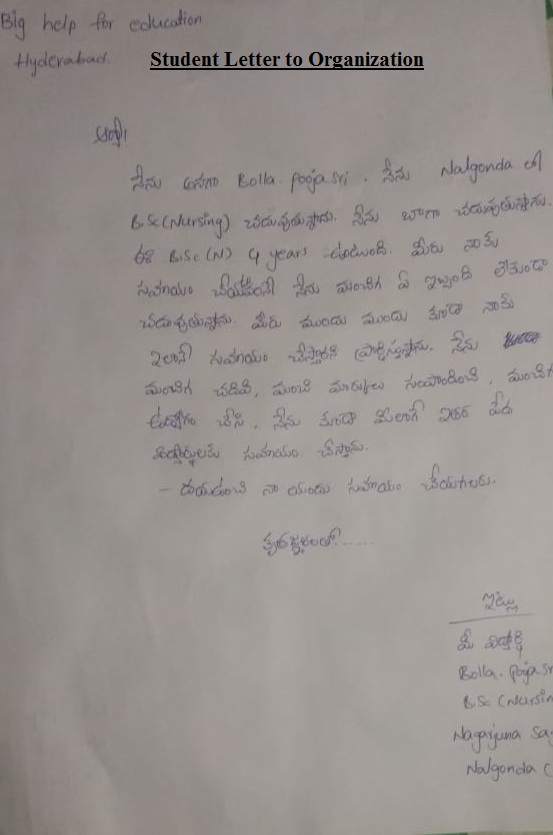 Big help for education
Hyderabad.
Student Letter to Organization
నేను అనగా Bolla. Pooja sri. నేను Nalgonda లో
B.Sc(Nursing) చదువుతున్నాను. నేను బాగా చదువుతున్నాను.
ఈ B.Sc (N) 4 years ఉంటుంది. మీరు నాకు
సహాయం చేయడంతో నేను మంచిగ ఏ ఇబ్బంది లేకుండా
చదువుతున్నాను. మీరు ముందు ముందు కూడా నాకు
ఇలానే సహాయం చేస్తారని ప్రార్థిస్తున్నాను. నేను
మంచిగ చదివి, మంచి మార్కులు సంపాదించి, మంచిగ
ఉద్యోగం చేసి, నేను కూడా మీలాగే ఇతర పేద
విద్యార్థులకు సహాయం చేస్తాను.
- దయఉంచి నా యందు సహాయం చేయగలరు.
కృతజ్ఞతలతో......
ఇట్లు
మీ విద్యార్థి
Bolla. Pooja sr
B.Sc (Nursin
Nagarjuna Sag
Nalgonda (